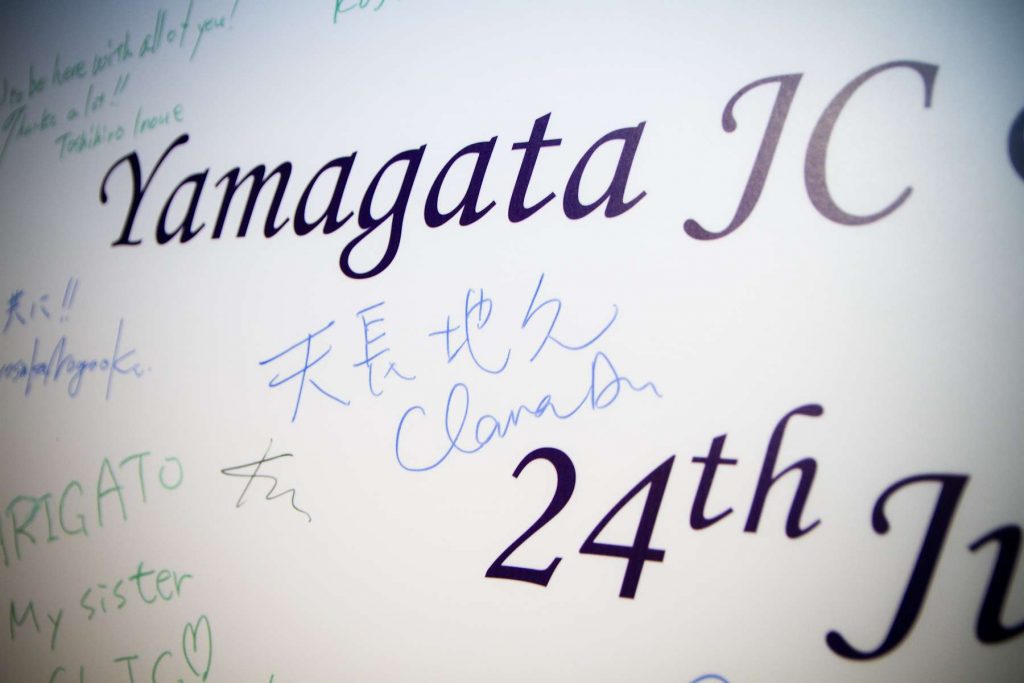 to be here with all of you!
Thanks a lot!!
Toshihiro Inoue
Yamagata JC
共に!!
天長地久
Clara
ARIGATO
24th
My sister